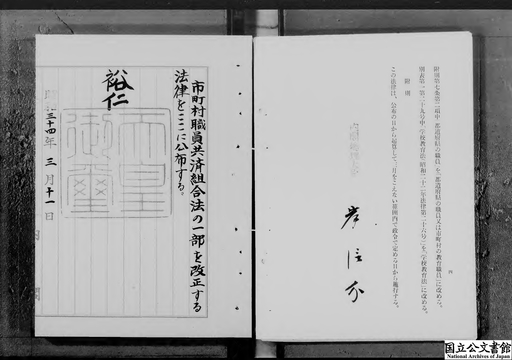 附則第七条第二項中「都道府県の職員」を「都道府県の職員又は市町村の教育職員」に改める。
別表第一第二十九号中「学校教育法(昭和二十二年法律第二十六号)」を「学校教育法」に改める。
附則
この法律は、公布の日から起算して三月をこえない範囲内で政令で定める日から施行する。
岸信介
市町村職員共済組合法の一部を改正する
法律をここに公布する。
裕仁
天皇
御璽
昭和三十四年三月十一日
国立公文書館
National Archives of Japan